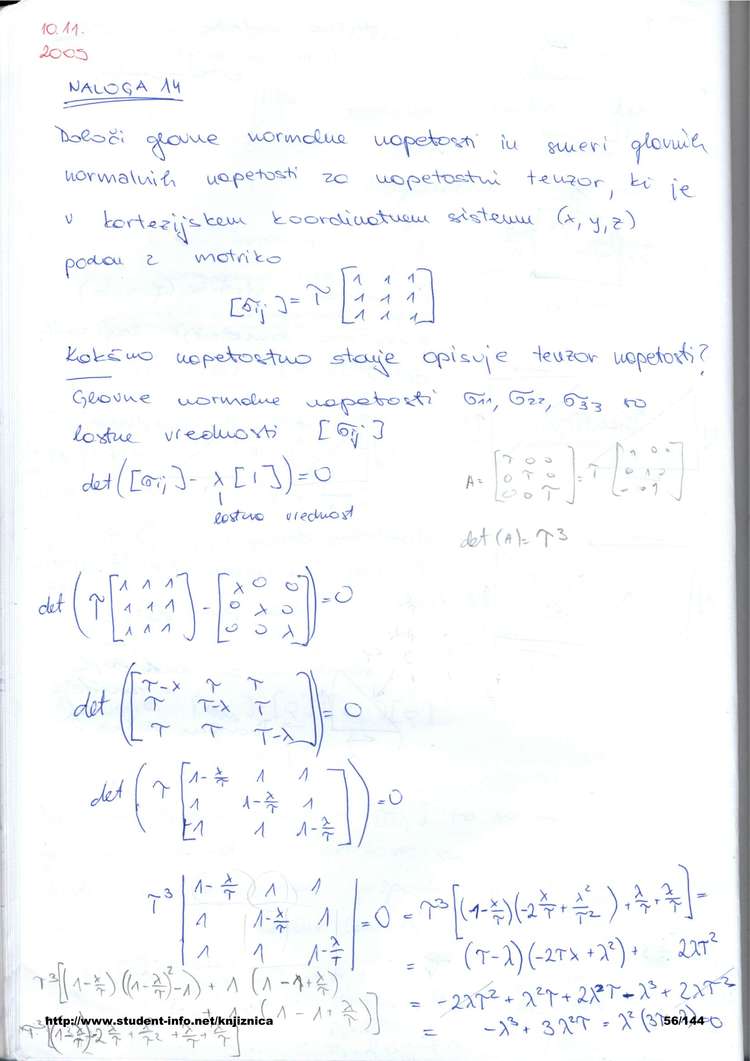 10.11.
2009
NALOGA 14
Določi glavne normalne napetosti in smeri glavnih
normalnih napetosti za napetostni tenzor, ki je
v kartezijskem koordinatnem sistemu (x, y, z)
podan z matriko
[σij] = τ [1 1 1
1 1 1
1 1 1]
Kakšno napetostno stanje opisuje tenzor napetosti?
Glavne normalne napetosti σ11, σ22, σ33 so
lastne vrednosti [σij]
det([σij] - λ[1]) = 0
lastna vrednost
A = [τ 0 0
0 τ 0
0 0 τ] = τ [1 0 0
0 1 0
0 0 1]
det(A) = τ³
det(τ[1 1 1
1 1 1
1 1 1] - [λ 0 0
0 λ 0
0 0 λ]) = 0
det([τ-λ τ τ
τ τ-λ τ
τ τ τ-λ]) = 0
det(τ[1-λ/τ 1 1
1 1-λ/τ 1
1 1 1-λ/τ]) = 0
τ³|1-λ/τ 1 1
1 1-λ/τ 1
1 1 1-λ/τ| = 0 = τ³[(1-λ/τ)(-2λ/τ+λ²/τ²)+λ/τ+λ/τ] =
= (τ-λ)(-2τλ+λ²) + 2λτ²
= -2λτ² + λ²τ + 2λ²τ - λ³ + 2λτ²
= -λ³ + 3λ²τ = λ²(3τ-λ)=0
τ³[(1-λ/τ)((1-λ/τ)²-1) + 1(1-1+λ/τ)
(1-1+λ/τ)]
http://www.student-info.net/knjiznica
56/144